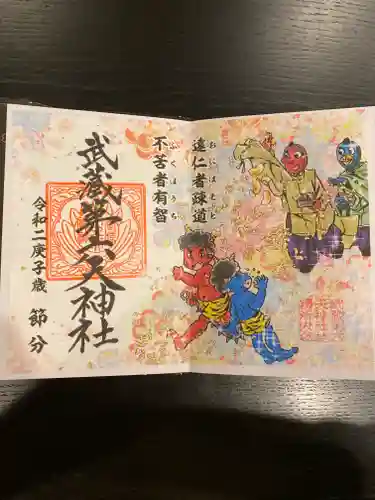 遠仁者疎道
おにはそと
不苦者有智
ふくはうち
武蔵第六天神社
令和二庚子歳 節分